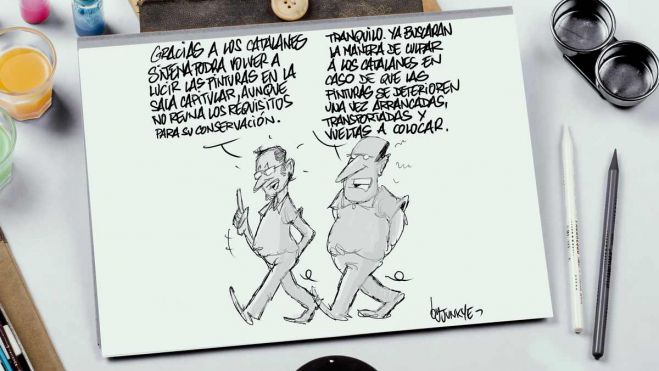 GRACIAS A LOS CATALANES
SIJENA PODRÁ VOLVER A
LUCIR LAS PINTURAS EN LA
SALA CAPITULAR, AUNQUE
NO REÚNA LOS REQUISITOS
PARA SU CONSERVACIÓN.
TRANQUILO. YA BUSCARÁN
LA MANERA DE CULPAR
A LOS CATALANES EN
CASO DE QUE LAS
PINTURAS SE DETERIOREN
UNA VEZ ARRANCADAS,
TRANSPORTADAS Y
VUELTAS A COLOCAR.
by JUNKYE